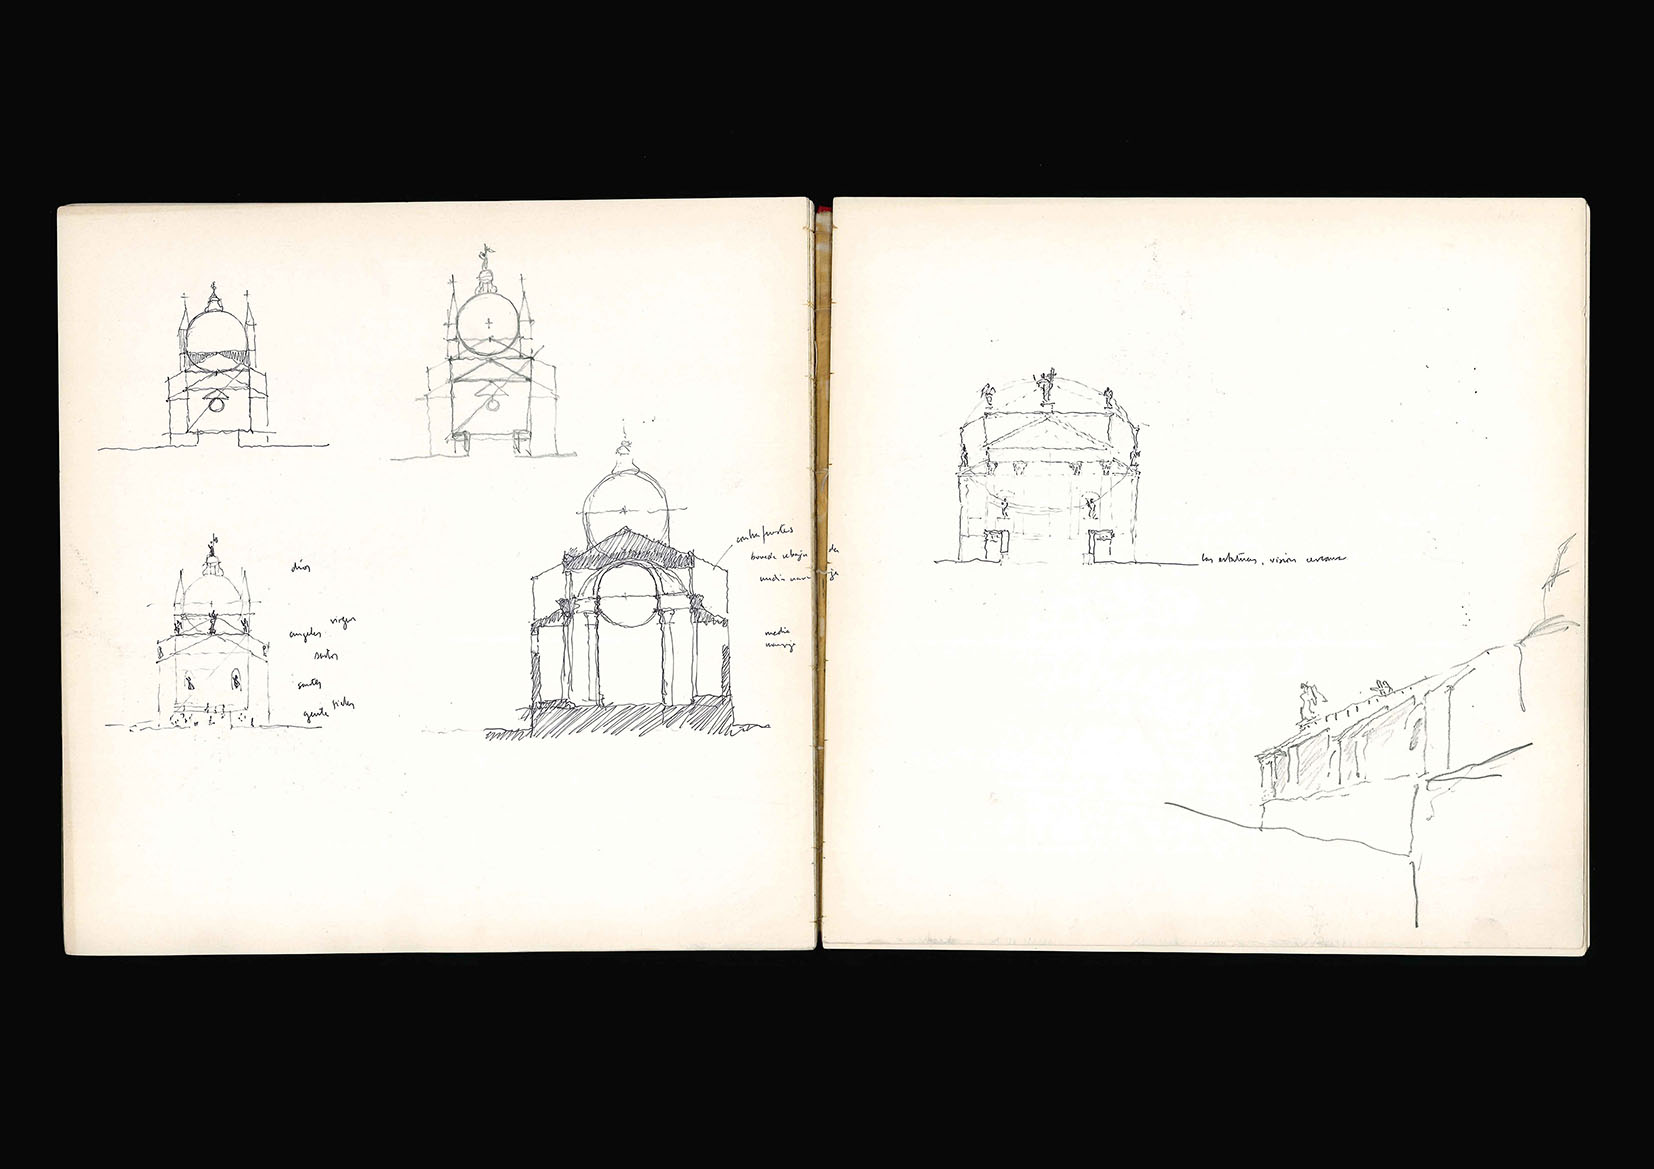 dios
virgen
angeles
santos
santos
fieles
gente
contrafuertes
boveda rebaja da
media naranja
media
naranja
las estatuas, vision cercana